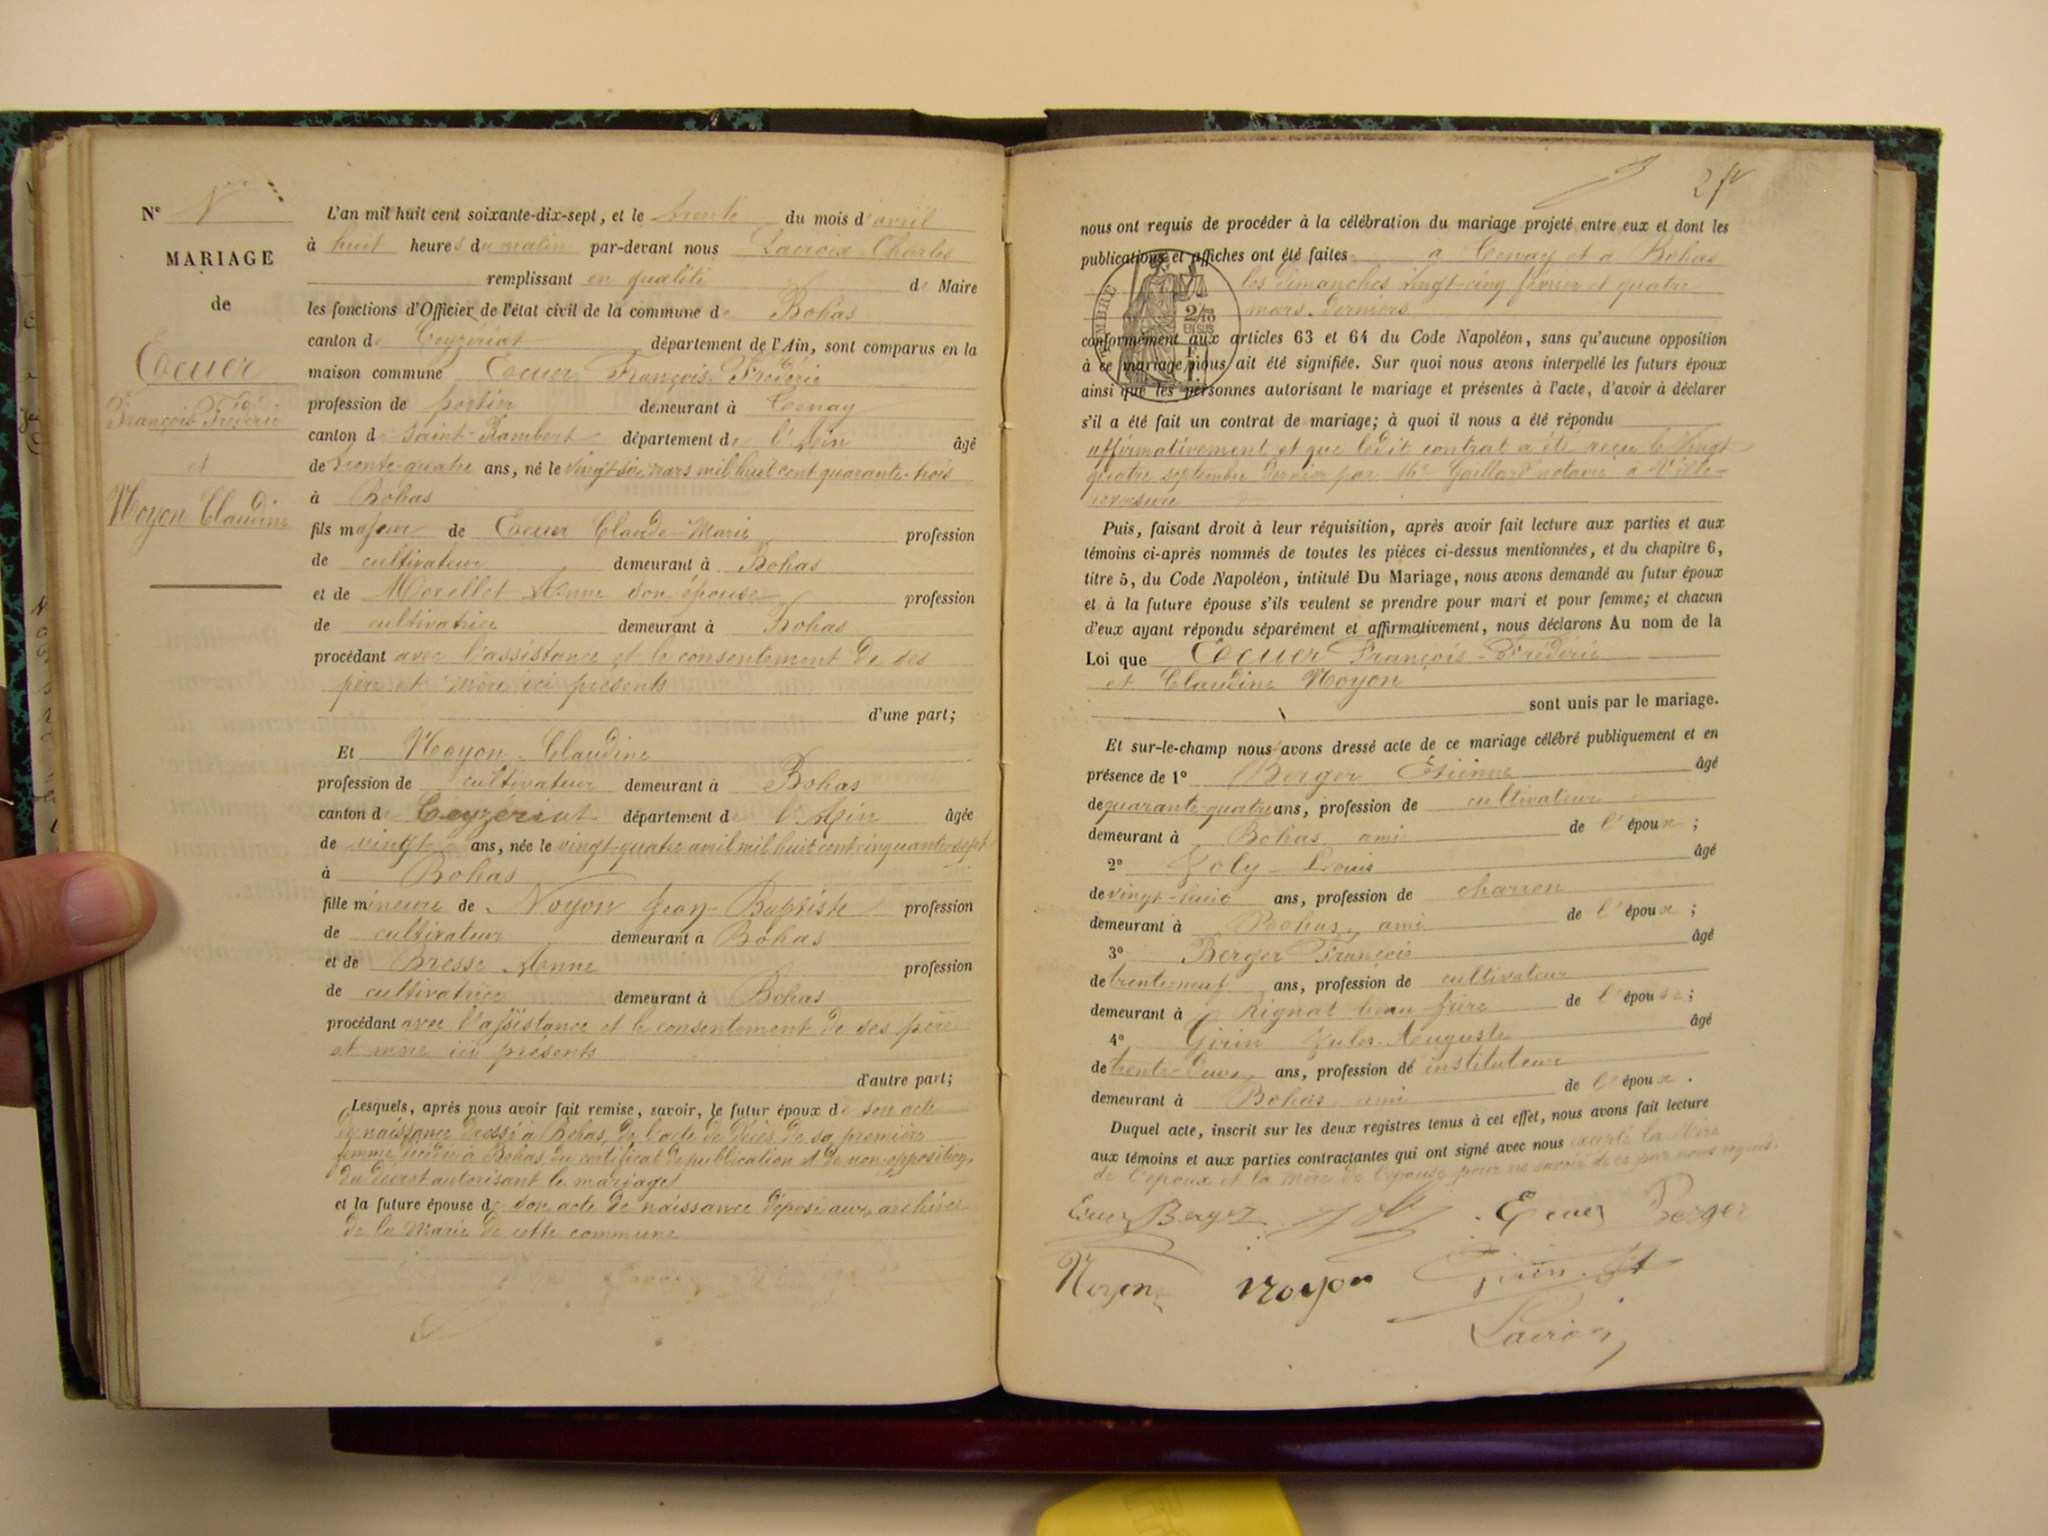 Nº
MARIAGE
de
Ecuer
François Fréderic
et
Noyon Claudine
L'an mil huit cent soixante-dix-sept, et le trente du mois d'avril
à huit heures du matin par-devant nous Lacroix Charles
remplissant en qualité de Maire
les fonctions d'Officier de l'état civil de la commune de Bohas
canton de Ceyzériat département de l'Ain, sont comparus en la
maison commune Ecuer François-Fréderic
profession de portier demeurant à Tenay
canton de Saint-Rambert département de l'Ain âgé
de trente-quatre ans, né le vingt-six mars mil huit cent quarante-trois
à Bohas
fils majeur de Ecuer Claude-Marie profession
de cultivateur demeurant à Bohas
et de Morellet Anne son épouse profession
de cultivatrice demeurant à Bohas
procédant avec l'assistance et le consentement de ses
père et mère ici présents
d'une part;
Et Noyon Claudine
profession de cultivateur demeurant à Bohas
canton de Ceyzériat département de l'Ain âgée
de vingt ans, née le vingt-quatre avril mil huit cent cinquante-sept
à Bohas
fille mineure de Noyon Jean-Baptiste profession
de cultivateur demeurant à Bohas
et de Bresse Anne profession
de cultivatrice demeurant à Bohas
procédant avec l'assistance et le consentement de ses père
et mère ici présents
d'autre part;
Lesquels, après nous avoir fait remise, savoir, le futur époux de son acte
de naissance dressé à Bohas, de l'acte de décès de sa première
femme décédée à Bohas, du certificat de publication et de non-opposition,
du décret autorisant le mariage
et la future épouse de son acte de naissance déposé aux archives
de la Mairie de cette commune
nous ont requis de procéder à la célébration du mariage projeté entre eux et dont les
publications et affiches ont été faites à Tenay et à Bohas
les dimanches vingt-cinq février et quatre
mars derniers
conformément aux articles 63 et 64 du Code Napoléon, sans qu'aucune opposition
à ce mariage nous ait été signifiée. Sur quoi nous avons interpellé les futurs époux
ainsi que les personnes autorisant le mariage et présentes à l'acte, d'avoir à déclarer
s'il a été fait un contrat de mariage; à quoi il nous a été répondu
affirmativement et que ledit contrat a été reçu le vingt
quatre septembre dernier par Me Gaillard notaire à Ville-
reversure
Puis, faisant droit à leur réquisition, après avoir fait lecture aux parties et aux
témoins ci-après nommés de toutes les pièces ci-dessus mentionnées, et du chapitre 6,
titre 5, du Code Napoléon, intitulé Du Mariage, nous avons demandé au futur époux
et à la future épouse s'ils veulent se prendre pour mari et pour femme; et chacun
d'eux ayant répondu séparément et affirmativement, nous déclarons Au nom de la
Loi que Ecuer François-Fréderic
et Claudine Noyon
sont unis par le mariage.
Et sur-le-champ nous avons dressé acte de ce mariage célébré publiquement et en
présence de 1º Berger Etienne âgé
de quarante-quatre ans, profession de cultivateur
demeurant à Bohas ami de l'époux;
2º Joly Louis âgé
de vingt-huit ans, profession de charron
demeurant à Bohas, ami de l'époux;
3º Berger François âgé
de trente-neuf ans, profession de cultivateur
demeurant à Rignat beau-frère de l'épouse;
4º Girin Jules-Auguste âgé
de trente-deux ans, profession de instituteur
demeurant à Bohas ami de l'époux.
Duquel acte, inscrit sur les deux registres tenus à cet effet, nous avons fait lecture
aux témoins et aux parties contractantes qui ont signé avec nous excepté la Mère
de l'époux et la mère de l'épouse pour ne savoir de ce par nous requis.
Ecuer Berger Joly Ecuer Berger
Noyon Noyon Girin
Lacroix